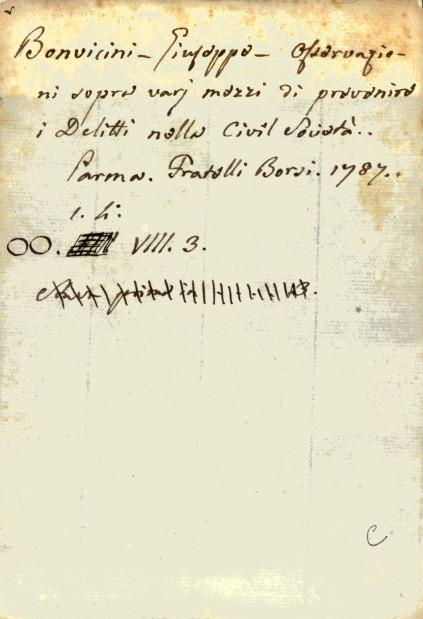 Bonvicini - Giuseppe - Osservazio-
ni sopra varj mezzi di prevenire
i Delitti nella Civil Società..
Parma. Fratelli Borsi. 1787..
1. 
OO. VIII. 3.
C